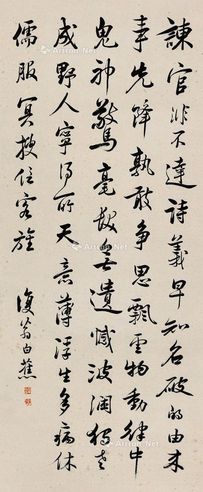 諫官非不達詩義早知名破的由來
事先鋒孰敢爭思飄雲物動律中
鬼神驚毫髮無遺憾波瀾獨老
成野人寧得所天意薄浮生多病休
儒服冥搜信客旌
復翁白蕉
Artron.Net